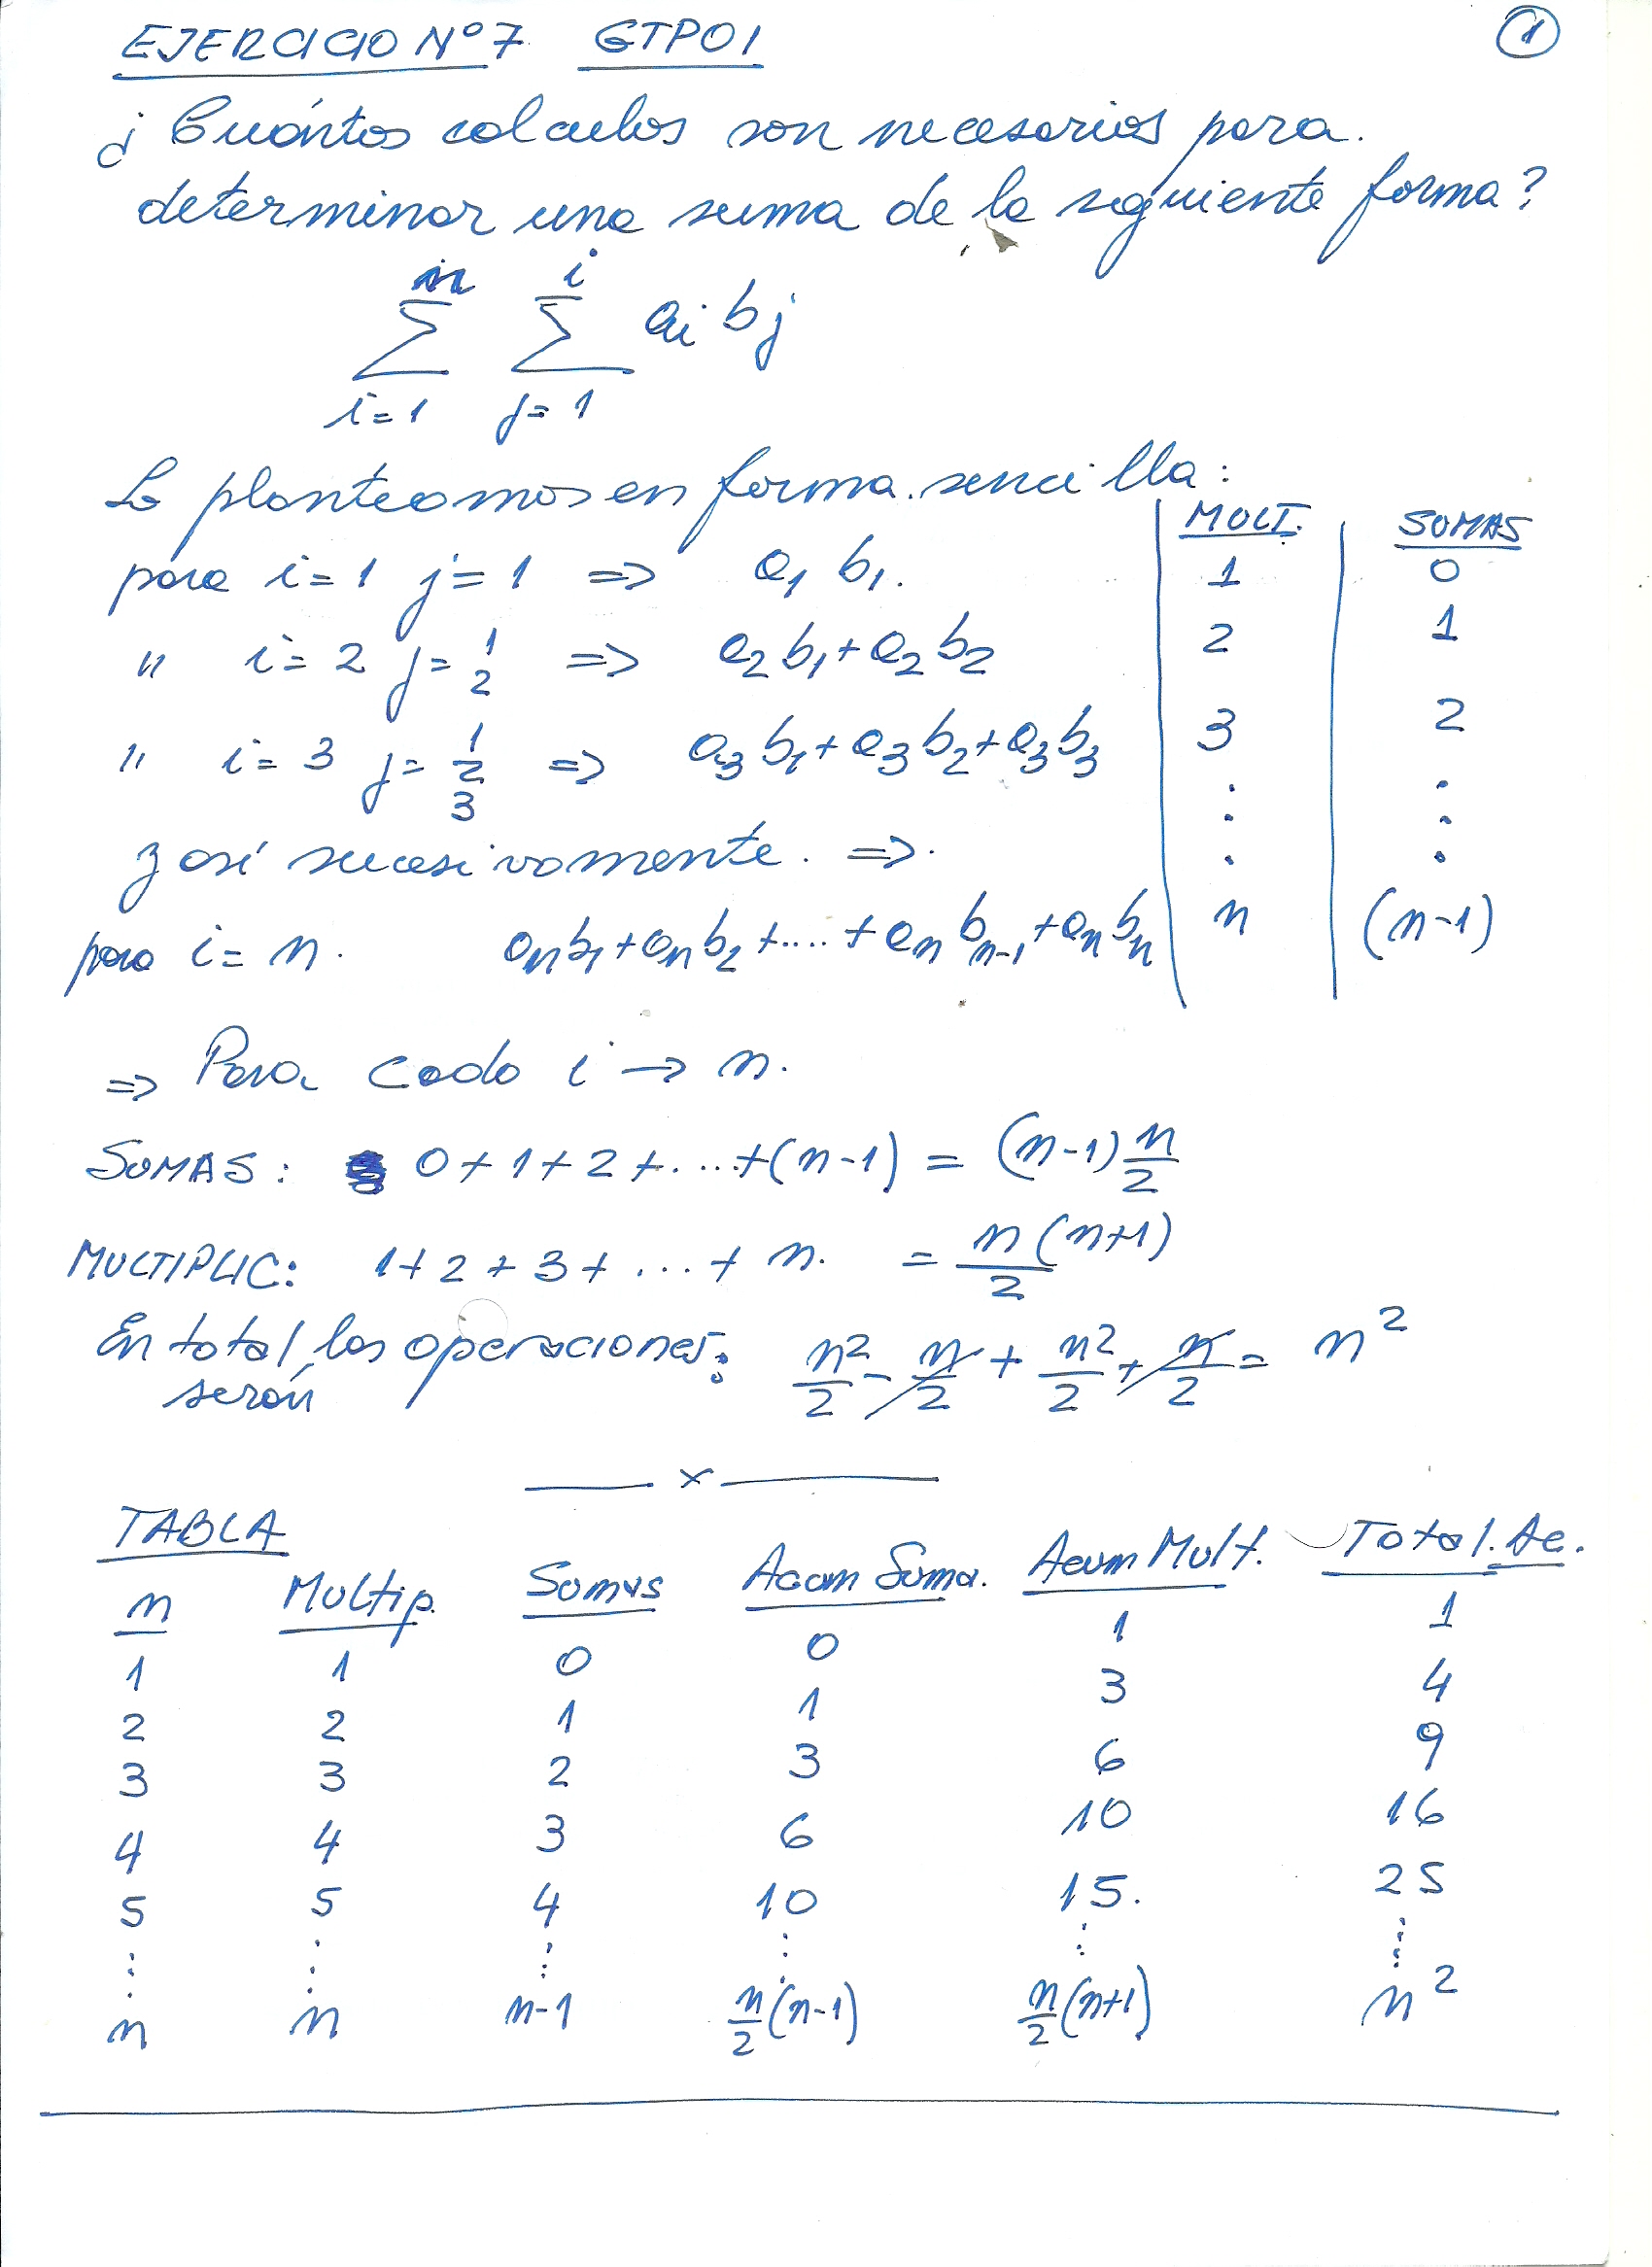 EJERCICIO Nº 7 GTP01 1
¿Cuántos calculos son necesarios para.
determinar una suma de la siguiente forma?
n i
∑ ∑ ai bj
i=1 j=1
Lo planteamos en forma sencilla: MULT. SUMAS
para i=1 j=1 => a1 b1. 1 0
" i=2 j= 1 2 => a2 b1 + a2 b2 2 1
" i=3 j= 1 2 3 => a3 b1 + a3 b2 + a3 b3 3 2
y así sucesivamente. =>.
para i=n. an b1 + an b2 + .... + an bn-1 + an bn n (n-1)
=> Para cada i → n.
SUMAS: 0+1+2+....+(n-1) = (n-1) n/2
MULTIPLIC: 1+2+3+...+n. = n(n+1)/2
En total, las operaciones: n²/2 - n/2 + n²/2 + n/2 = n²
serán
x
TABLA
n Multip. Sumas Acum Suma. Acum Mult. Total.Ac.
1 1 0 0 1 1
2 2 1 1 3 4
3 3 2 3 6 9
4 4 3 6 10 16
5 5 4 10 15. 25
⋮ ⋮ ⋮ ⋮ ⋮ ⋮
n n n-1 n/2(n-1) n/2(n+1) n²